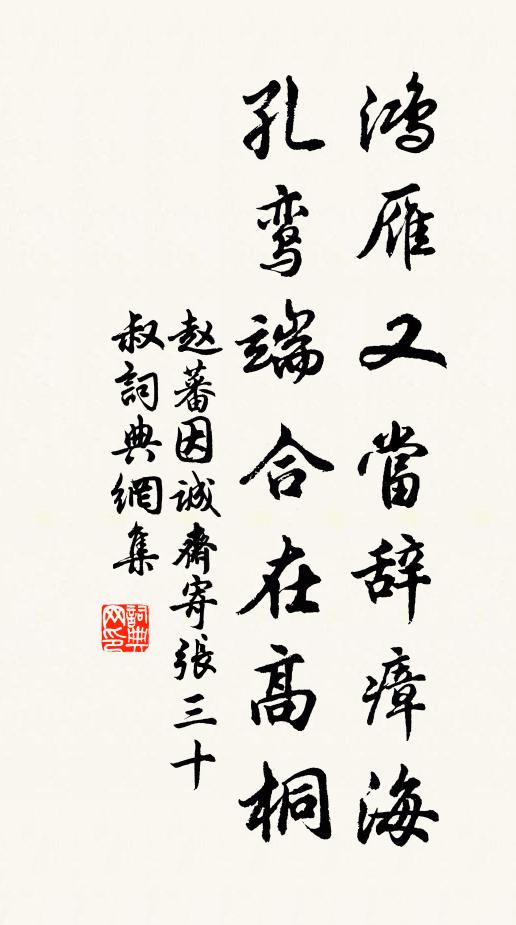 鸿雁又當辞瘴海
孔鸾端合在高桐
赵蕃因诚齋寄張三十
叔詞典網集
詞典
网印